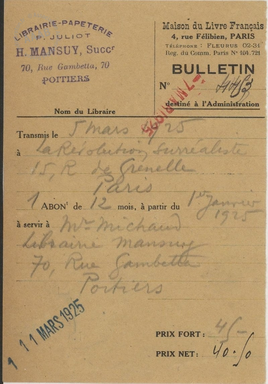 LIBRAIRIE-PAPETERIE
P. JULIOT
H. MANSUY, Succr
70, Rue Gambetta, 70
POITIERS
Maison du Livre Français
4, rue Félibien, PARIS
TÉLÉPHONE : FLEURUS 02-31
Reg. du Comm. Paris Nº
BULLETIN
Nº
destiné à l'Administration
Nom du Libraire
Transmis le 5 mars 1925
à La Révolution Surréaliste
15, R de Grenelle
Paris
1 ABONt de 12 mois, à partir du 1er Janvier
1925
à servir à Mr Michaud
Librairie Mansuy
70, Rue Gambetta
Poitiers
11 MARS 1925
PRIX FORT : 45
PRIX NET : 40.50